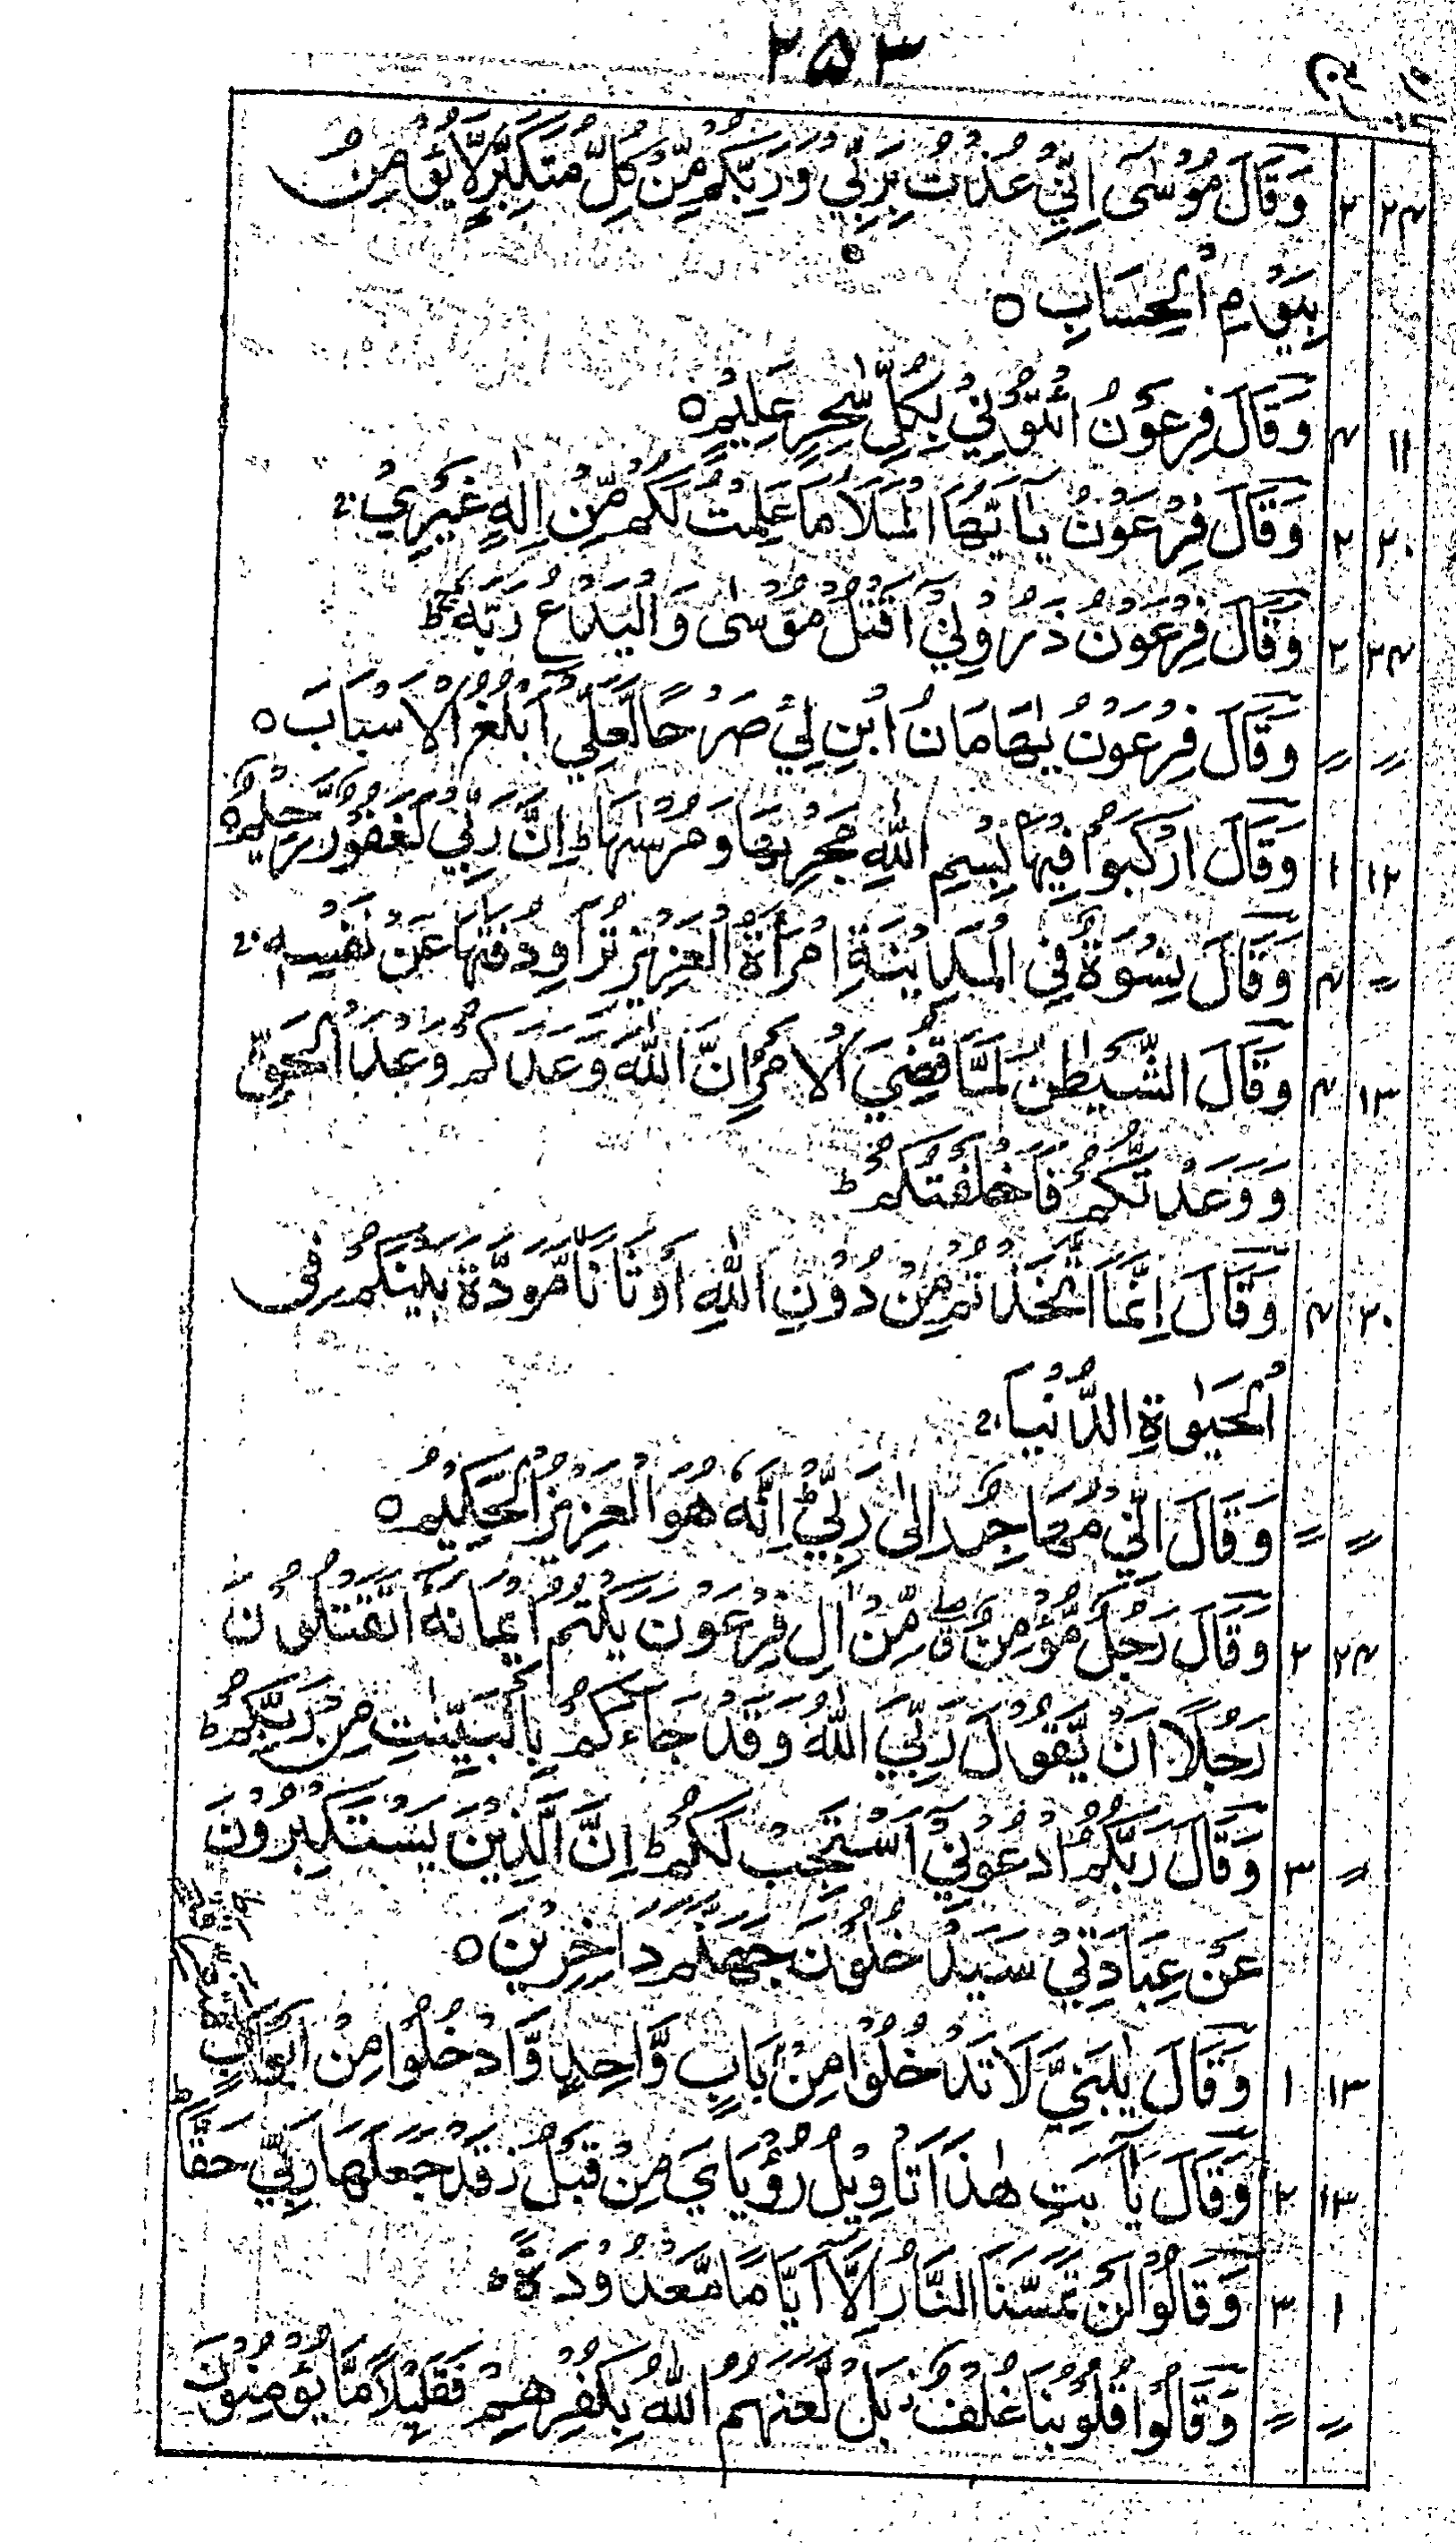 ۲۵۳
۲۴ ۲ وَقَالَ مُوْسٰى اِنِّيْ عُذْتُ بِرَبِّيْ وَرَبِّكُمْ مِّنْ كُلِّ مُتَكَبِّرٍ لَّا يُؤْمِنُ
بِيَوْمِ الْحِسَابِ ○
۱۱ ۴ وَقَالَ فِرْعَوْنُ ائْتُوْنِيْ بِكُلِّ سٰحِرٍ عَلِيْمٍ ○
۲۰ ۲ وَقَالَ فِرْعَوْنُ يٰاَيُّهَا الْمَلَاُ مَا عَلِمْتُ لَكُمْ مِّنْ اِلٰهٍ غَيْرِيْ ۚ
۲۴ ۲ وَقَالَ فِرْعَوْنُ ذَرُوْنِيْٓ اَقْتُلْ مُوْسٰى وَالْيَدْعُ رَبَّهٗ ۚ ط
〃 〃 وَقَالَ فِرْعَوْنُ يٰهَامَانُ ابْنِ لِيْ صَرْحًا لَّعَلِّيْٓ اَبْلُغُ الْاَسْبَابَ ○
۱۲ ۱ وَقَالَ ارْكَبُوْا فِيْهَا بِسْمِ اللّٰهِ مَجْرٖىهَا وَمُرْسٰىهَا ط اِنَّ رَبِّيْ لَغَفُوْرٌ رَّحِيْمٌ ○
〃 ۴ وَقَالَ نِسْوَةٌ فِي الْمَدِيْنَةِ امْرَاَةُ الْعَزِيْزِ تُرَاوِدُ فَتٰىهَا عَنْ نَّفْسِهٖ ۚ
۱۳ ۴ وَقَالَ الشَّيْطٰنُ لَمَّا قُضِيَ الْاَمْرُ اِنَّ اللّٰهَ وَعَدَكُمْ وَعْدَ الْحَقِّ
وَوَعَدْتُّكُمْ فَاَخْلَفْتُكُمْ ط
۲۰ ۴ وَقَالَ اِنَّمَا اتَّخَذْتُمْ مِّنْ دُوْنِ اللّٰهِ اَوْثَانًا مَّوَدَّةَ بَيْنِكُمْ فِى
الْحَيٰوةِ الدُّنْيَا ۚ
〃 〃 وَقَالَ اِنِّيْ مُهَاجِرٌ اِلٰى رَبِّيْ ط اِنَّهٗ هُوَ الْعَزِيْزُ الْحَكِيْمُ ○
۲۴ ۲ وَقَالَ رَجُلٌ مُّؤْمِنٌ ق مِّنْ اٰلِ فِرْعَوْنَ يَكْتُمُ اِيْمَانَهٗٓ اَتَقْتُلُوْنَ
رَجُلًا اَنْ يَّقُوْلَ رَبِّيَ اللّٰهُ وَقَدْ جَآءَكُمْ بِالْبَيِّنٰتِ مِنْ رَّبِّكُمْ ط
〃 ۳ وَقَالَ رَبُّكُمُ ادْعُوْنِيْٓ اَسْتَجِبْ لَكُمْ ط اِنَّ الَّذِيْنَ يَسْتَكْبِرُوْنَ
عَنْ عِبَادَتِيْ سَيَدْخُلُوْنَ جَهَنَّمَ دَاخِرِيْنَ ○
۱۳ ۱ وَقَالَ يٰبَنِيَّ لَا تَدْخُلُوْا مِنْۢ بَابٍ وَّاحِدٍ وَّادْخُلُوْا مِنْ اَبْوَابٍ
۱۳ ۲ وَقَالَ يٰٓاَبَتِ هٰذَا تَاْوِيْلُ رُؤْيَايَ مِنْ قَبْلُ ز قَدْ جَعَلَهَا رَبِّيْ حَقًّا ط
۱ ۳ وَقَالُوْا لَنْ تَمَسَّنَا النَّارُ اِلَّآ اَيَّامًا مَّعْدُوْدَةً ط
〃 〃 وَقَالُوْا قُلُوْبُنَا غُلْفٌ ط بَلْ لَّعَنَهُمُ اللّٰهُ بِكُفْرِهِمْ فَقَلِيْلًا مَّا يُؤْمِنُوْنَ